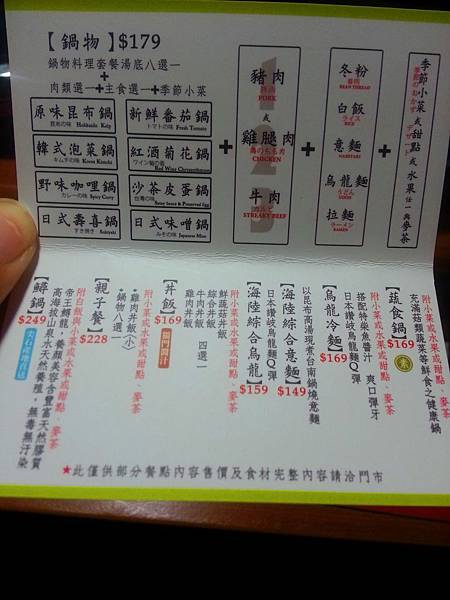 【鍋物】$179
鍋物料理套餐湯底八選一
+
肉類選一+主食選一+季節小菜
原味昆布鍋
昆布の味 Hokkaido Kelp
新鮮番茄鍋
トマトの味 Fresh Tomato
韓式泡菜鍋
キムチの味 Korea Kimchi
紅酒菊花鍋
ワイン菊の味 Red Wine Chrysanthemum
野味咖哩鍋
カレーの味 Spicy Curry
沙茶皮蛋鍋
台湾の味
日式壽喜鍋
すき焼き Sukiyaki
日式味噌鍋
みその味 Japanese Miso
+
豬肉
豚肉
PORK
或
雞腿肉
鳥のもも肉
CHICKEN
或
牛肉
STREAKY BEEF
+
冬粉
春雨
BEAN THREAD
白飯
ライス
RICE
意麵
NABEYAKI
烏龍麵
うどん
UDON
拉麵
ラーメン
RAMEN
+
季節小菜或甜點或水果任一與麥茶
【蔬食鍋】$169 素
充滿菇類蔬菜等鮮食之健康鍋
附小菜或水果或甜點、麥茶
【烏龍冷麵】$169
搭配特柴魚醬汁 爽口彈牙
日本讚岐烏龍麵Q彈
【海陸綜合意麵】$149
以昆布高湯現煮台南鍋燒意麵
【海陸綜合烏龍】$159
日本讚岐烏龍麵Q彈
【丼飯】$169
附小菜或水果或甜點、麥茶
鮮蔬菇丼飯
綜合丼飯
牛肉丼飯
雞肉丼飯 四選一
【親子餐】$228
附小菜或水果或甜點、麥茶
•雞肉丼飯(小)
•鍋物八選一
【鱘鍋】$249
附白飯與小菜或水果或甜點、麥茶
帝王鱘龍，養顏美容含豐富天然膠質
高海拔山泉水天然養殖，無毒無汙染
★此僅供部分餐點內容售價及食材完整內容請洽門市